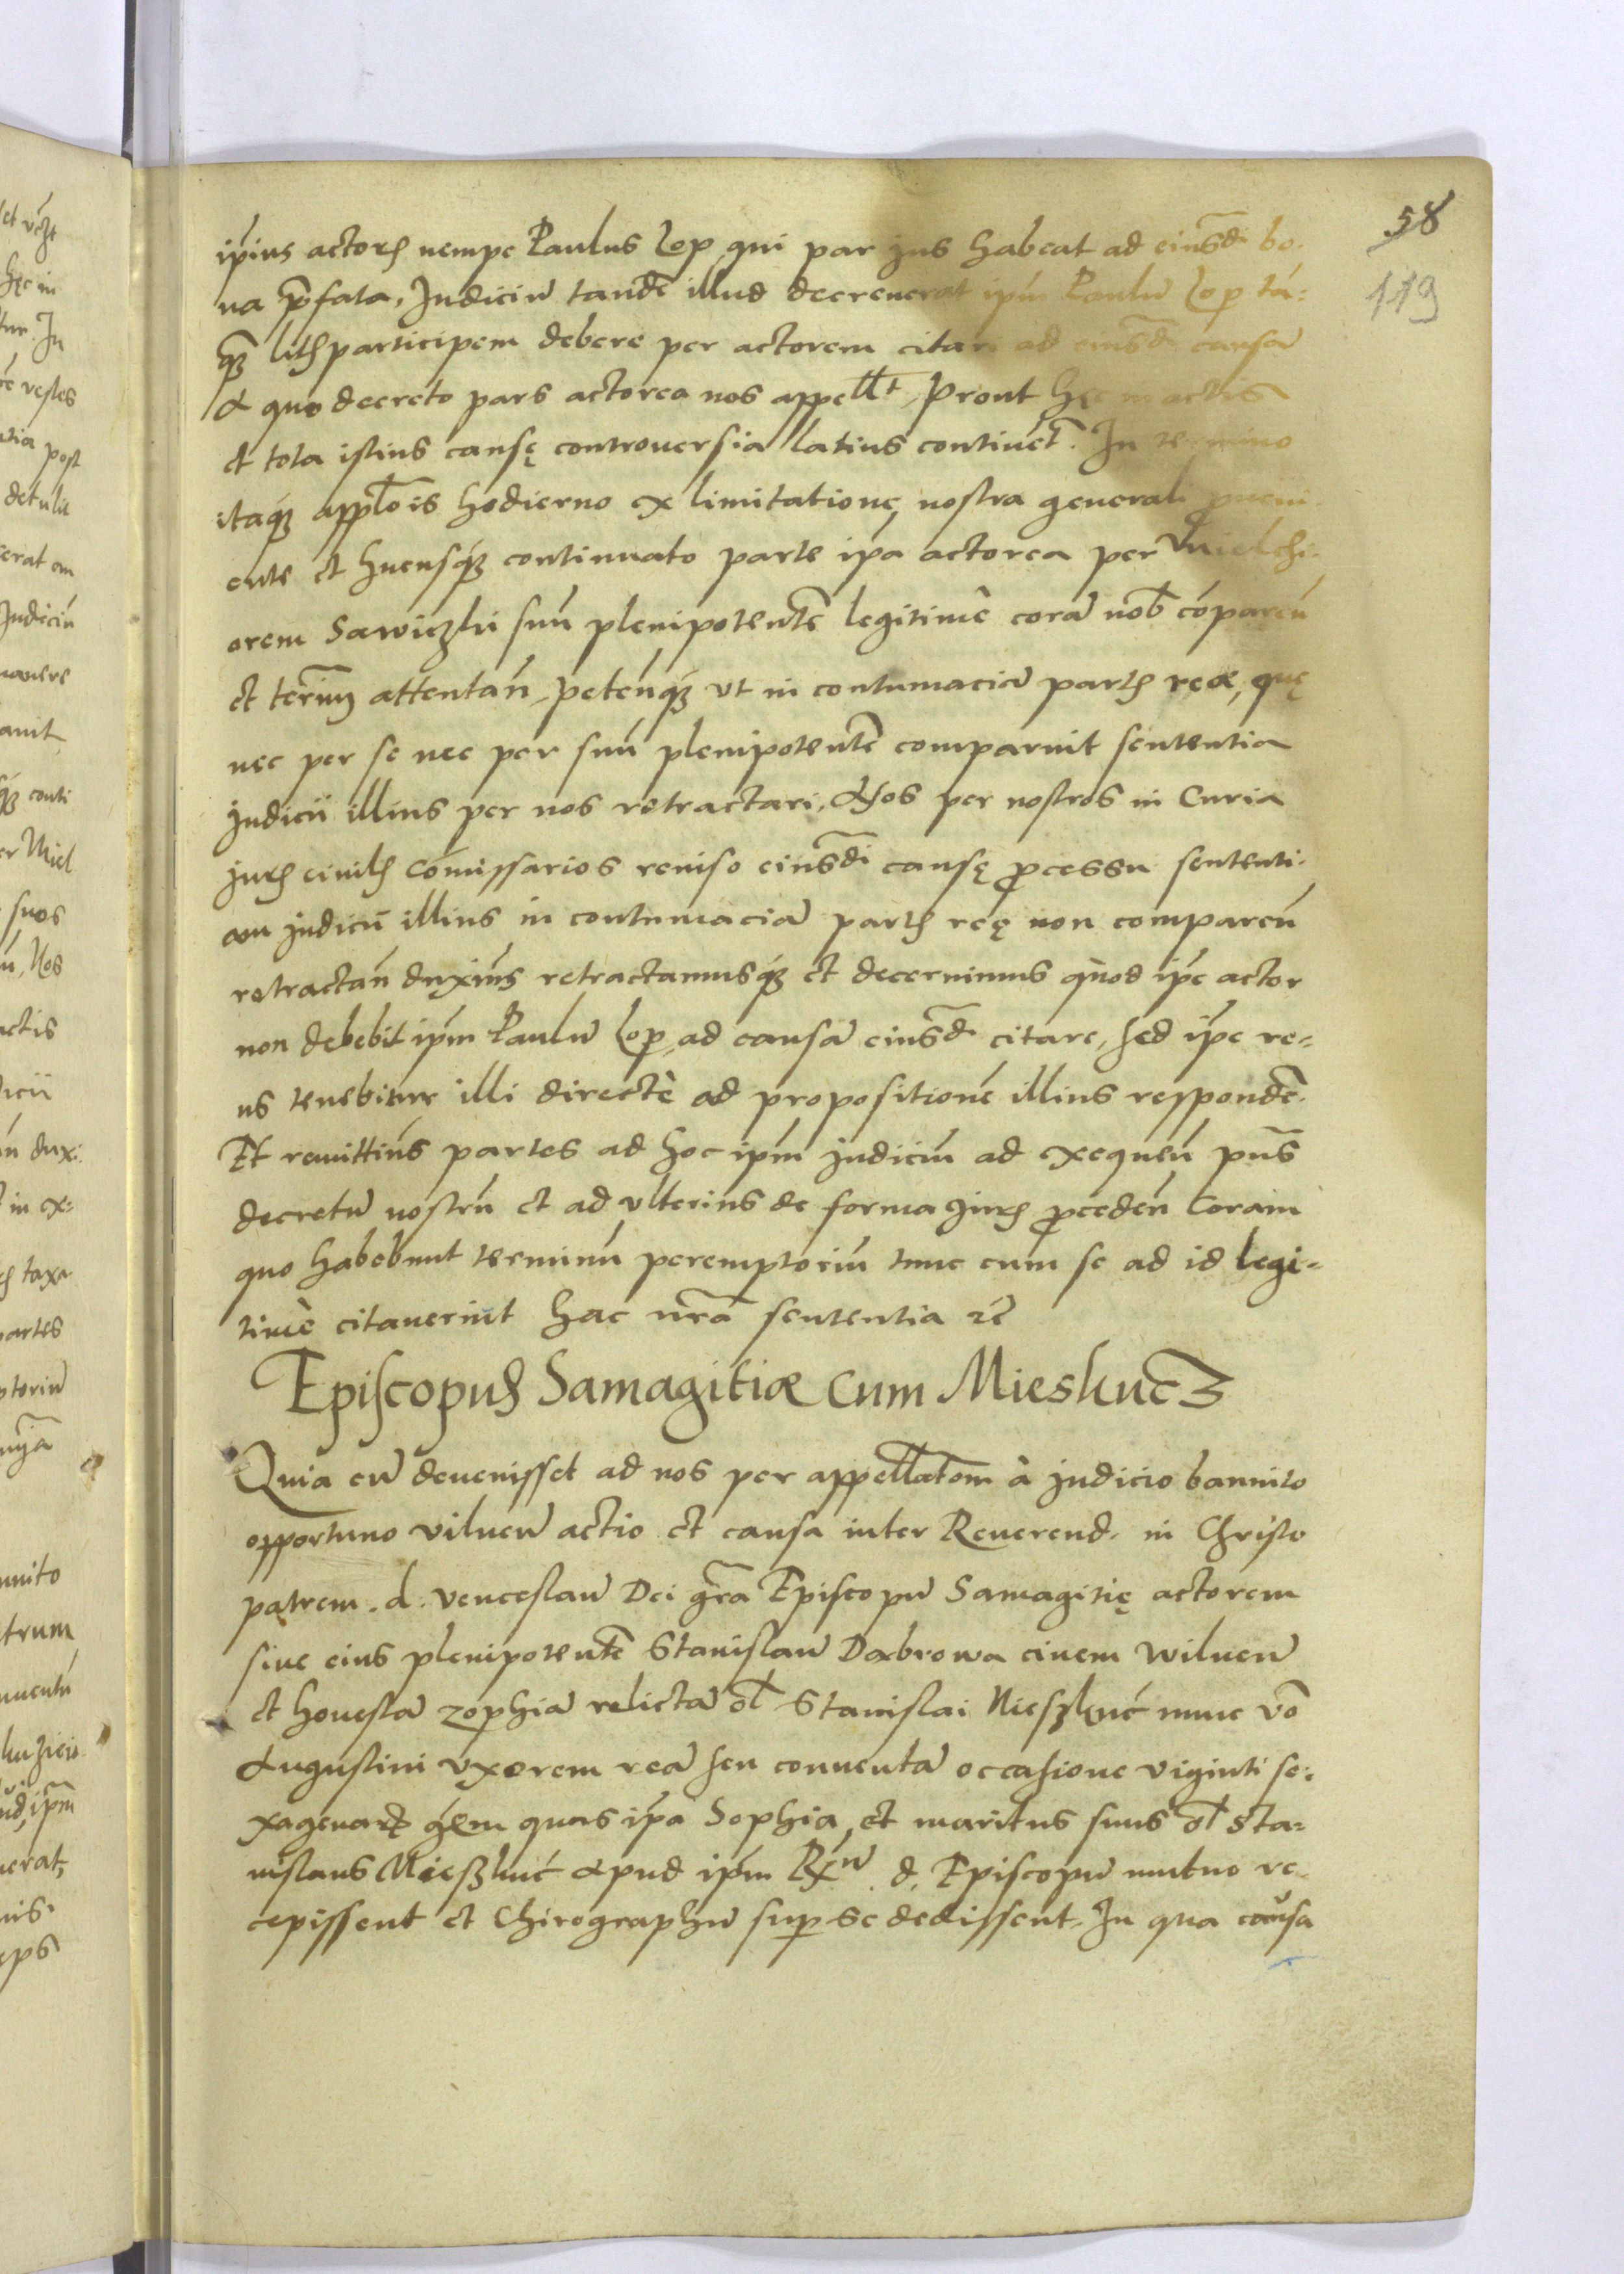 58
119
ip̃ius actoris nempe Paulus Lop, qui par jus habeat ad eiusd̃ bo-
na p̃fata, Judiciũ tandẽ illud decreuerat ip̃m Paulũ Lop tã=
q̃ litis participem debere per actorem citari ad eiusd̃ causã
A quo decreto pars actorea nos appell̃t, Prout hęc in actis
et tota istius causę controuersia latius continet̃. In termino
itaq; appl̃ois hodierno ex limitatione nostra generali p̃ueni-
ente et hucusq; continuato parte ip̃a actorea per Mielchi-
orem Sawiczki suũ plenipotentẽ legitimè corã nob̃ cõpareñ
et term̃ attentañ, petenq; vt in contumaciã partis reæ, quę
nec per se nec per suũ plenipotentẽ comparuit sententia
judicii illius per nos retractari, Nos per nostros in Curia
juris ciuilis Cõmissarios reuiso eiusd̃ causę p̃cessu sententi-
am judicii illius in contumaciã partis reę non compareñ
retractañ duxim̃s retractamusq; et decernimus quod ip̃e actor
non debebit ip̃m Paulũ Lop, ad causã eiusd̃ citare, sed ip̃e re=
us tenebitur illi directè ad propositionẽ illius respondẽ.
Et remittim̃s partes ad hoc ip̃m judiciũ ad exequeñ pñs
decretũ nostrũ et ad vlterius de forma juris p̃cedeñ Coram
quo habebunt terminũ peremptoriũ tunc cum se ad id legi=
timè citauerint hac nr̃a sententia rẽ
Episcopus Samagitiæ cum Mieskucz
Quia cũ deuenisset ad nos per appellatõm à judicio bannito
opportuno vilneñ actio et causa inter Reuerend. in Christo
patrem . d . venceslaũ Dei gr̃a Episcopũ Samagitię actorem
siue eius plenipotentẽ Stanislaũ Dabrowa ciuem Wilneñ
et honestã zophiã relictã ol̃ Stanislai Mieszkuć nunc võ
Augustini vxorem reã seu conuentã occasione viginti se-
xagenarũ gr̃em quas ip̃a Sophia, et maritus suus ol̃ Sta=
nislaus Mieszkuć apud ip̃m Rx̃ũ . d. Episcopũ mutuo re-
cepissent et Chirographũ sup̃ se dedissent. In qua causa